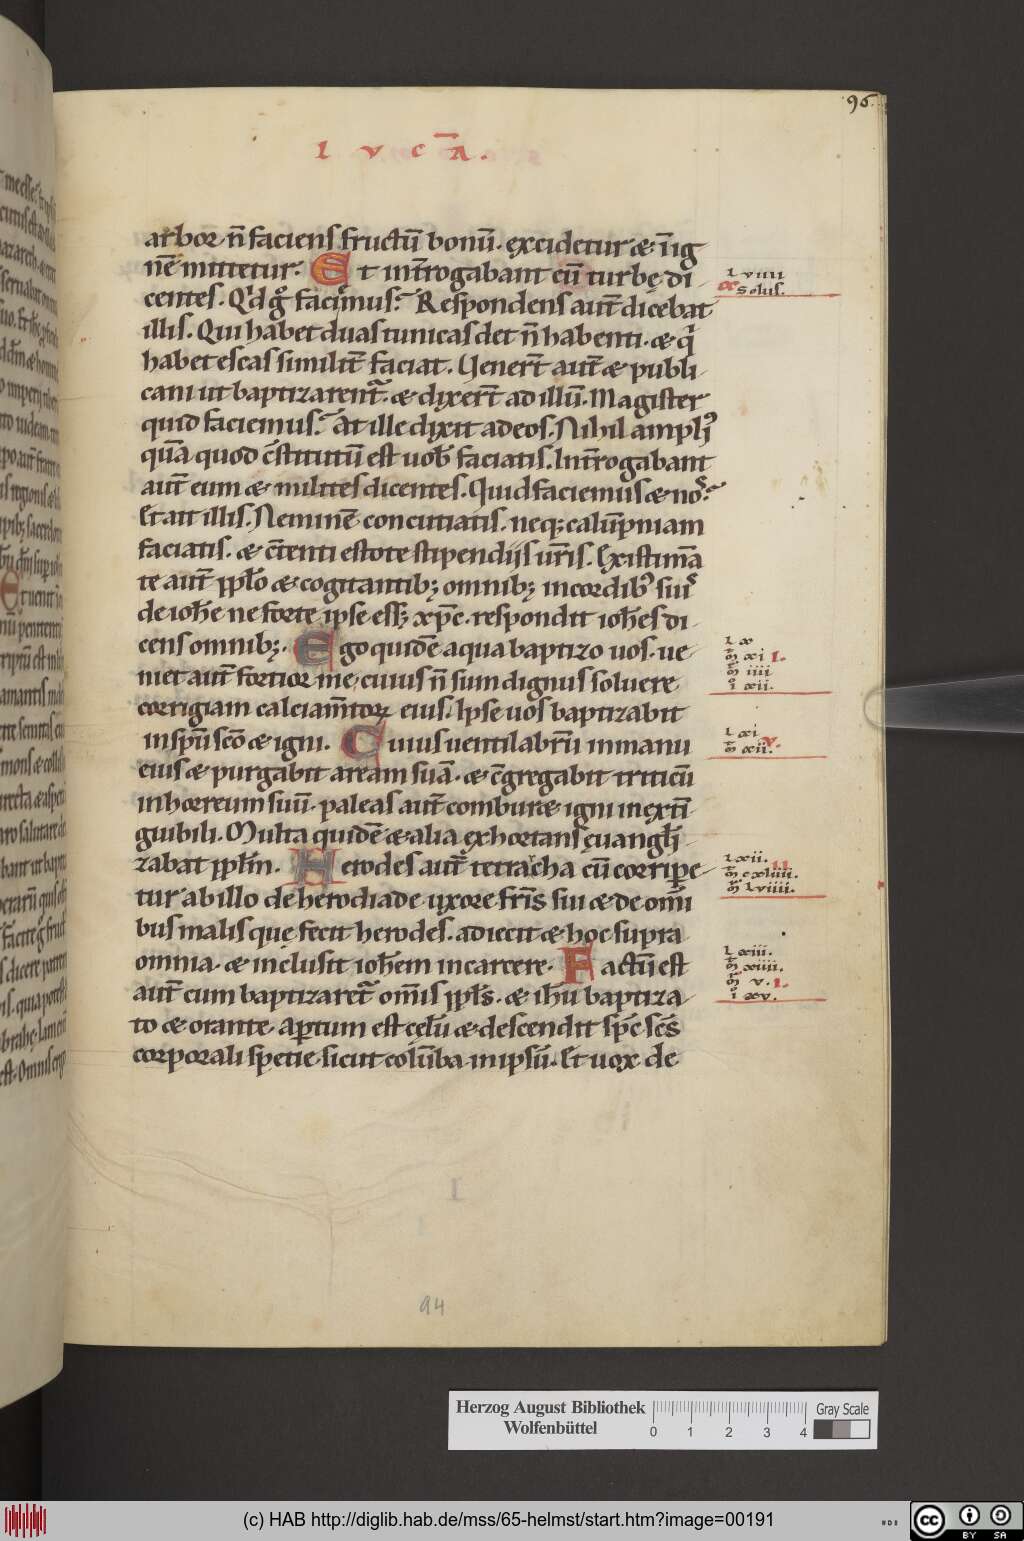 96.
LVCĀ.
arbor n̄ faciens fructū bonū. excidetur & in ig
nē mittetur. Et int̄rogabant eū turbę di
centes. Qid g̊ faciem̓? Respondens aut̄ dicebat
illis. Qui habet duas tunicas det n̄ habenti. & qi
habet escas similit̄ faciat. Uener̄t aut̄ & publi
cani ut baptizarent̄. & dixer̄t ad illū. Magister
quid faciemus? At ille dixit ad eos. Nihil ampli᷒
quā quod c̄stitutū est uob̄ faciatis. Int̄rogabant
aut̄ eum & milites dicentes. Quid faciemus & nos?
Et ait illis. Neminē concutiatis. neq; calūpniam
faciatis. & c̄tenti estote stipendiis ur̄is. Existimā
te aut̄ pplo & cogitantib; omnib; in cordib᷒ suis
de ioh̄e ne forte ipse ess& xp̄c. respondit ioh̄es di
cens omnib;. Ego quidē aqua baptizo uos. ue
niet aut̄ fortior me, cuius n̄ sum dignus soluere
corrigiam calciam̄torꝝ eius. Ipse uos baptizabit
in sp̄u sc̄o & igni. Cuius uentilabrū in manu
eius & purgabit aream suā. & c̄gregabit triticū
in horreum suū. paleas aut̄ comburæ igni inextī
guibili. Multa quidē & alia exhortans euangl̄i
zabat ppl̄m. Herodes aut̄ tetrarcha cū corripe
tur ab illo de herodiade uxore fr̄is sui & de om̄i
bus malis que fecit herodes. adiecit & hoc supra
omnia. & inclusit ioh̄em in carcere. Factū est
aut̄ cum baptizaret̄ om̄is ppl̄s. & ih̄u baptiza
to & orante. aꝑtum est cęlū & descendit sp̄c sc̄s
corporali specie sicut colūba in ipsū. Et uox de
l viiii
x Solus.
l x
m̄ xi I.
m̄ iiii
i̊ xii.
l xi
m̄ xii. v.
l xii. II
m̄ cxliiii.
m̄ lviiii.
l xiii.
m̄ xiiii.
m̄ v. I.
i̊ xv.
94
Herzog August Bibliothek
Wolfenbüttel
0 1 2 3 4
Gray Scale
(c) HAB http://diglib.hab.de/mss/65-helmst/start.htm?image=00191
cc BY SA